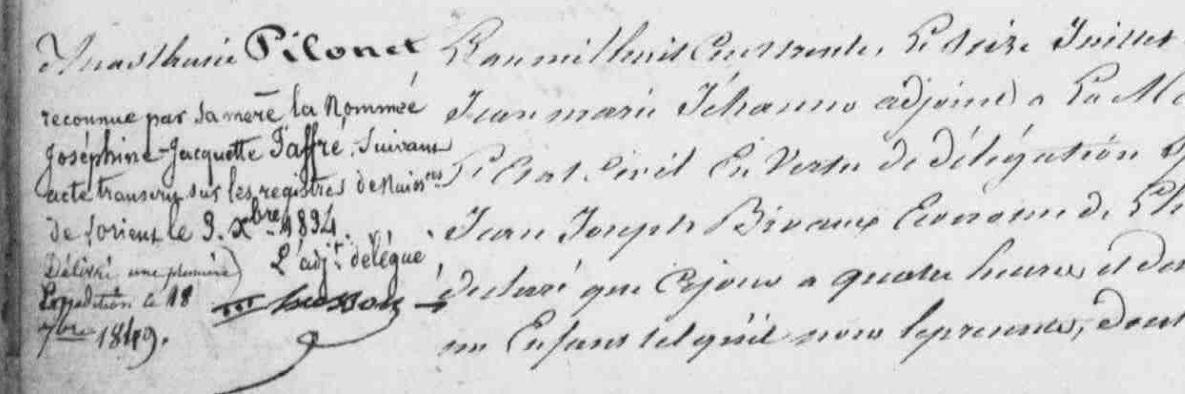 Anasthasie Pilonet
reconnue par sa mère la Nommée
Joséphine-Jacquette Jaffré, Suivant
acte transcrit sur les registres de Naiss.ces
de Lorient le 3. Xbre 1834.
L'adj.t délégué
Délivré une première
Expédition le 18
7bre 1849.
L'an mil huit Cent trente, Le seize Juillet
Jean marie Jéhanno adjoint a La
L'Etat Civil En Vertu de délégation
Jean Joseph Econome de
déclaré que Cejour a quatre heures et
un Enfant tel qu'il nous le presente, dont